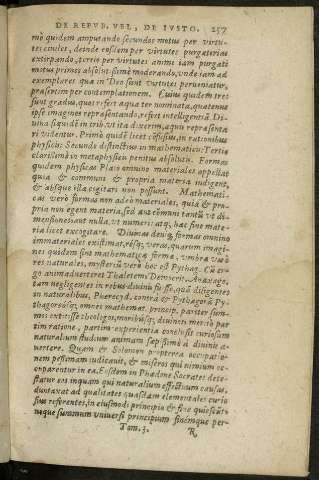 DE REPVB. VEL, DE IVSTO. 257
mò quidem amputando secundos motus per virtu-
tes ciuiles, deinde eosdem per virtutes purgatorias
extirpando, tertio per virtutes animi iam purgati
motus primos absolutissimè moderando, vnde iam ad
exemplares quæ in Deo sunt virtutes perueniatur,
præsertim per contemplationem. Cuius quidem tres
sunt gradus, quos refert aqua ter nominata, quatenus
ipse imagines repræsentando, refert intelligentiā. Di-
uina siquidē in tribus, vt ita dixerim, aquis repræsenta-
ri videntur. Primò quidē licet cōfusius, in rationibus
physicis: Secundò distinctius in mathematicis: Tertiò
clarissimè in metaphysicis penitus absolutis. Formas
quidem physicas Plato omnino materiales appellat
quia & communi & propria materia indigent,
& absque illa cogitari non possunt. Mathemati-
cas verò formas non adeò materiales, quia & pro-
pria non egent materia, sed aut cōmuni tantū vt di-
mensiones aut nulla, vt numeri: atq, hac sine mate-
ria licet excogitare. Diuinas deniq; formas omnino
immateriales existimat, resq; veras, quarum imagi-
nes quidem sint mathematicæ formæ, vmbræ verò
res naturales, mysteriū verò hoc est Pythag. Cū er-
go animaduerteret Thaletem, Democrit. Anaxago-
ram negligentes in rebus diuinis fuisse, quā diligentes
in naturalibus, Pherecyd. contrà & Pythagorā Py-
thagoricosq; omnes mathemat. princip. pariter sum-
mos extitisse theologos, moribusq; diuinos, meritò par
tim ratione, partim experientia conclusit curiosum
naturalium studium animam sæpissimè à diuinis a-
uertere. Quam & Solomon propterea occupatio-
nem pessimam iudicauit, & miseros qui nimium oc-
cuparentur in ea. Eosdem in Phædone Socrates dete-
statur eos inquam qui naturalium effectuum causas,
duntaxat ad qualitates quasdam elementales curio
sius referentes, in eiusmodi principio & fine quiescūt:
neque summum vniuersi principium finémque per-
Tom. 3. R